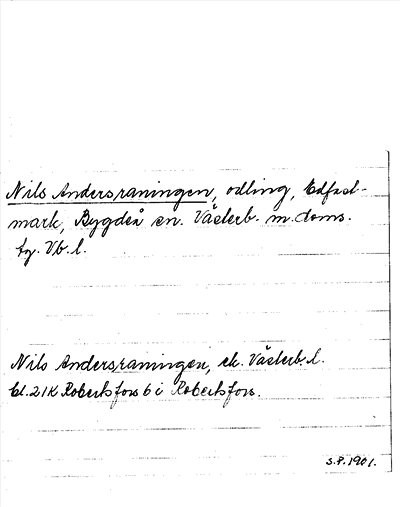 Nils Andersraningen, odling, Edfast-
mark, Bygdeå sn. Västerb. m. doms.
fg. Vb. l.
Nils Andersraningen, ek. Västerb. l.
bl. 21K Robertsfors 6 i Robertsfors.
S.P. 1901.